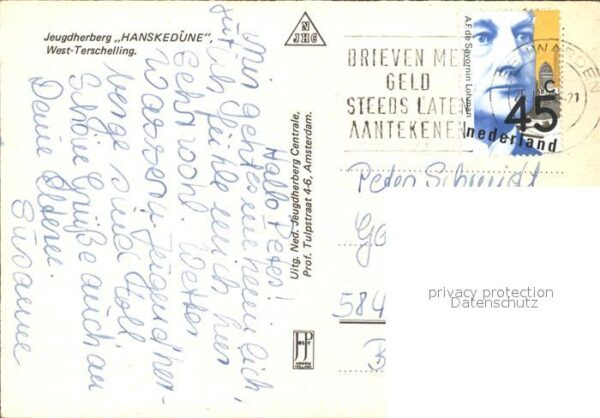 Jeugdherberg „HANSKEDÙNE”,
West-Terschelling.
Hallo Peter!
Mir geht es unheimlich
gut, ich fühle mich hier
sehr wohl. Wetter
Wasser u. Jugendher-
berge sind toll
Schöne Grüße auch an
Deine Eltern
Susanne
Uitg. Ned. Jeugdherberg Centrale,
Prof. Tulpstraat 4-6, Amsterdam.
N
JHC
BRIEVEN MET
GELD
STEEDS LATEN
AANTEKENEN
A.F. de Savornin Lohman
c
45
nederland
Peter Schmidt
584
privacy protection
Datenschutz